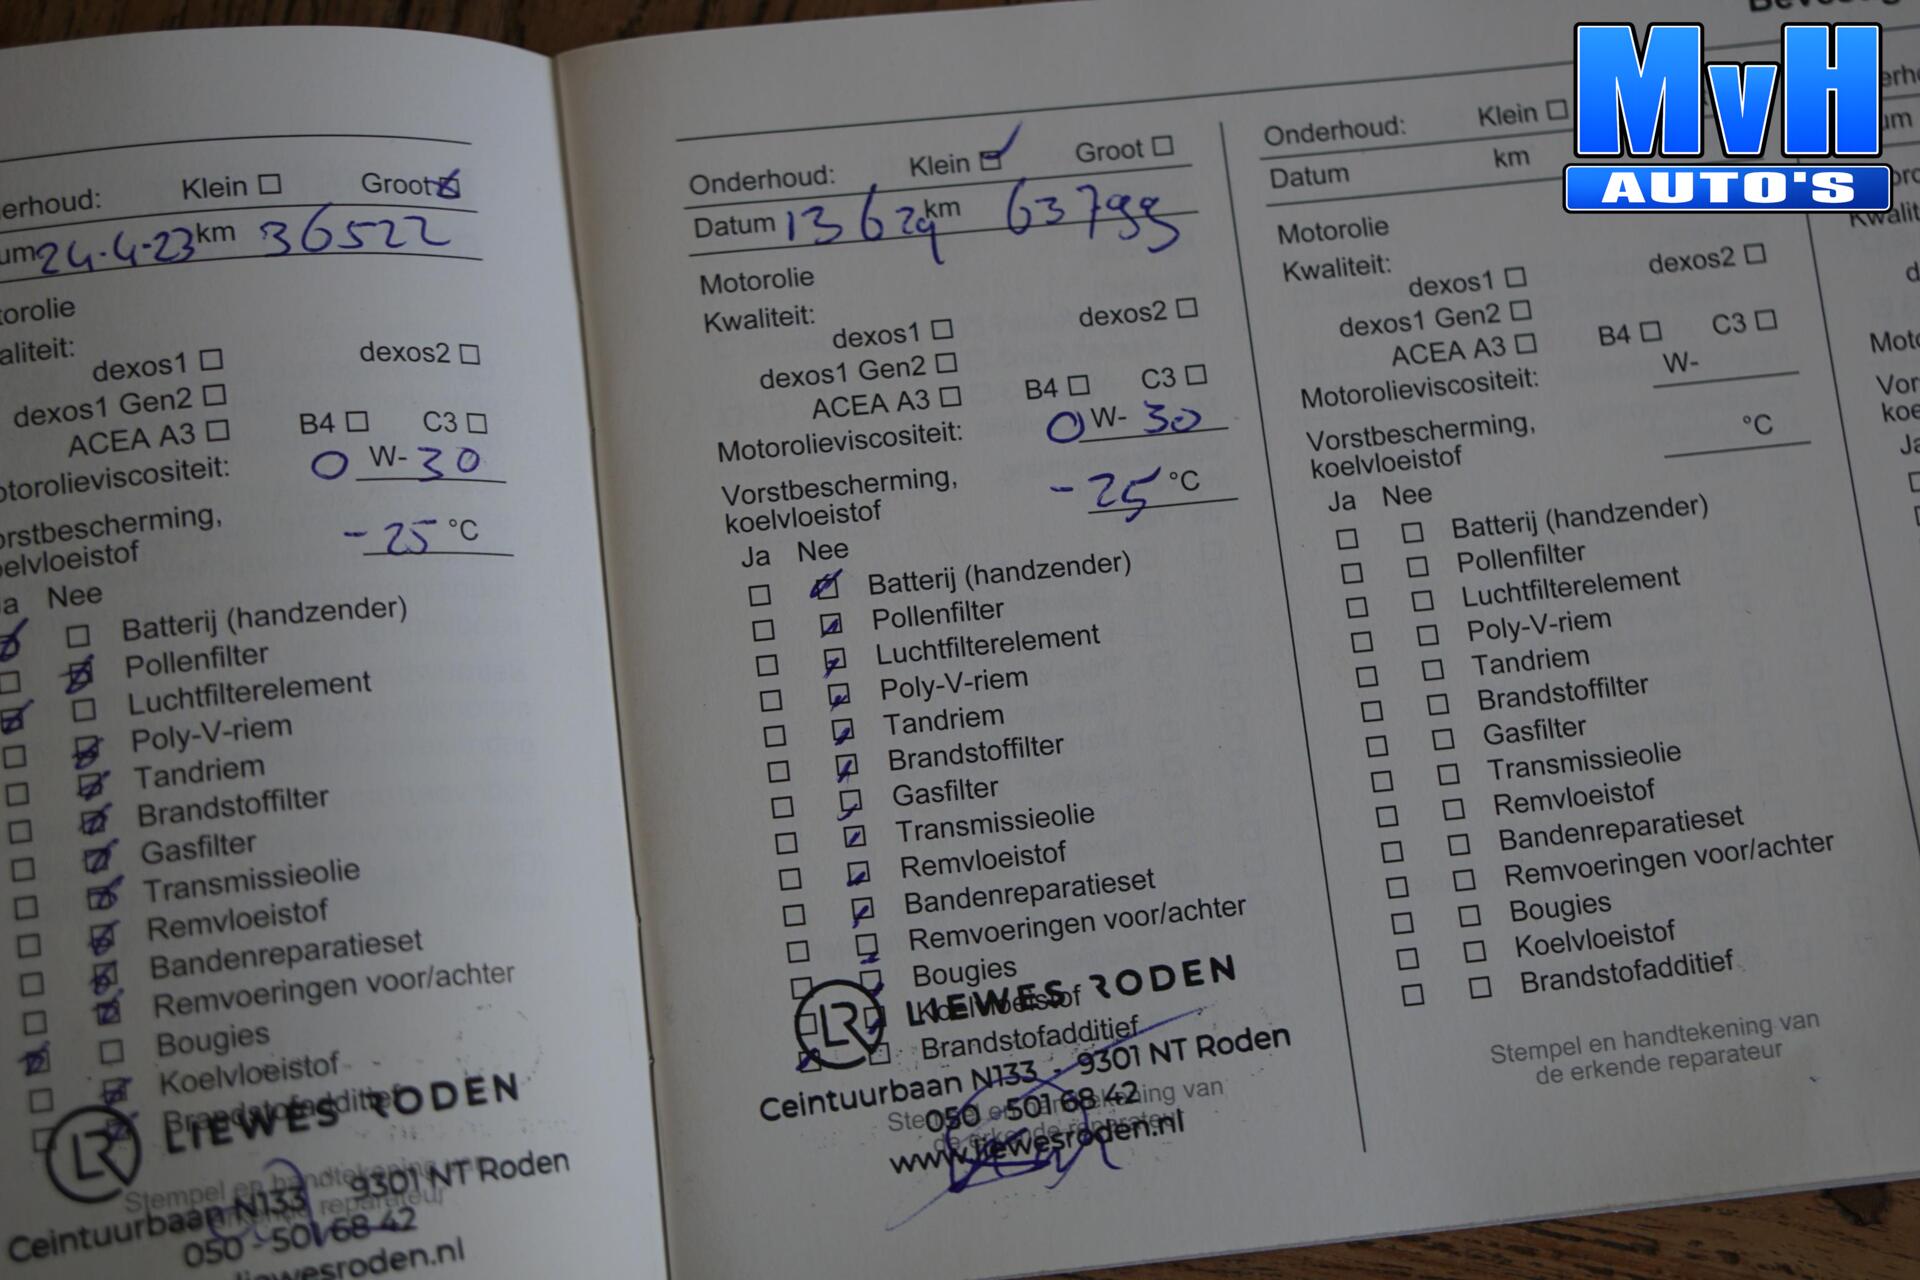 MvH
AUTO'S
erhoud: Klein Groot
um 24-4-23 km 36522
torolie
aliteit:
dexos1 dexos2
dexos1 Gen2
ACEA A3 B4 C3
otorolieviscositeit: 0 W- 30
orstbescherming,
oelvloeistof -25 °C
a Nee
Batterij (handzender)
Pollenfilter
Luchtfilterelement
Poly-V-riem
Tandriem
Brandstoffilter
Gasfilter
Transmissieolie
Remvloeistof
Bandenreparatieset
Remvoeringen voor/achter
Bougies
Koelvloeistof
Brandstofadditief
LR LIEWES RODEN
Stempel en handtekening van
Ceintuurbaan N133 9301 NT Roden
050 - 501 68 42
liewesroden.nl
Onderhoud: Klein Groot
Datum 13 6 24 km 63799
Motorolie
Kwaliteit:
dexos1 dexos2
dexos1 Gen2
ACEA A3 B4 C3
Motorolieviscositeit: 0 W- 30
Vorstbescherming,
koelvloeistof -25 °C
Ja Nee
Batterij (handzender)
Pollenfilter
Luchtfilterelement
Poly-V-riem
Tandriem
Brandstoffilter
Gasfilter
Transmissieolie
Remvloeistof
Bandenreparatieset
Remvoeringen voor/achter
Bougies
Koelvloeistof
Brandstofadditief
LR LIEWES RODEN
Ceintuurbaan N133 - 9301 NT Roden
Stempel en handtekening van
050 - 501 68 42
de erkende reparateur
www.liewesroden.nl
Onderhoud: Klein
Datum km
Motorolie
Kwaliteit:
dexos1 dexos2
dexos1 Gen2
ACEA A3 B4 C3
Motorolieviscositeit: W-
Vorstbescherming,
koelvloeistof °C
Ja Nee
Batterij (handzender)
Pollenfilter
Luchtfilterelement
Poly-V-riem
Tandriem
Brandstoffilter
Gasfilter
Transmissieolie
Remvloeistof
Bandenreparatieset
Remvoeringen voor/achter
Bougies
Koelvloeistof
Brandstofadditief
Stempel en handtekening van
de erkende reparateur